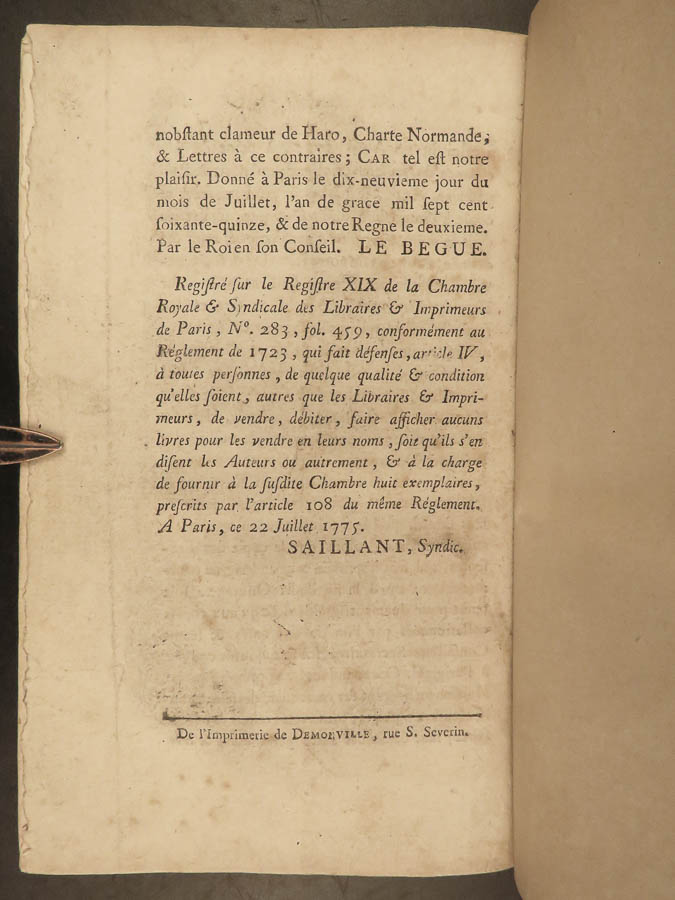 nobſtant clameur de Haro, Charte Normande,
& Lettres à ce contraires ; CAR tel eſt notre
plaiſir. Donné à Paris le dix-neuvieme jour du
mois de Juillet, l'an de grace mil ſept cent
ſoixante-quinze, & de notre Regne le deuxieme.
Par le Roi en ſon Conſeil. LE BEGUE.
Regiſtré ſur le Regiſtre XIX de la Chambre
Royale & Syndicale des Libraires & Imprimeurs
de Paris, Nº. 283, fol. 459, conformément au
Réglement de 1723, qui fait défenſes, article IV,
à toutes perſonnes, de quelque qualité & condition
qu'elles ſoient, autres que les Libraires & Impri-
meurs, de vendre, débiter, faire afficher aucuns
livres pour les vendre en leurs noms, ſoit qu'ils s'en
diſent les Auteurs ou autrement, & à la charge
de fournir à la ſuſdite Chambre huit exemplaires,
preſcrits par l'article 108 du même Réglement.
A Paris, ce 22 Juillet 1775.
SAILLANT, Syndic.
De l'Imprimerie de DEMONVILLE, rue S. Severin.